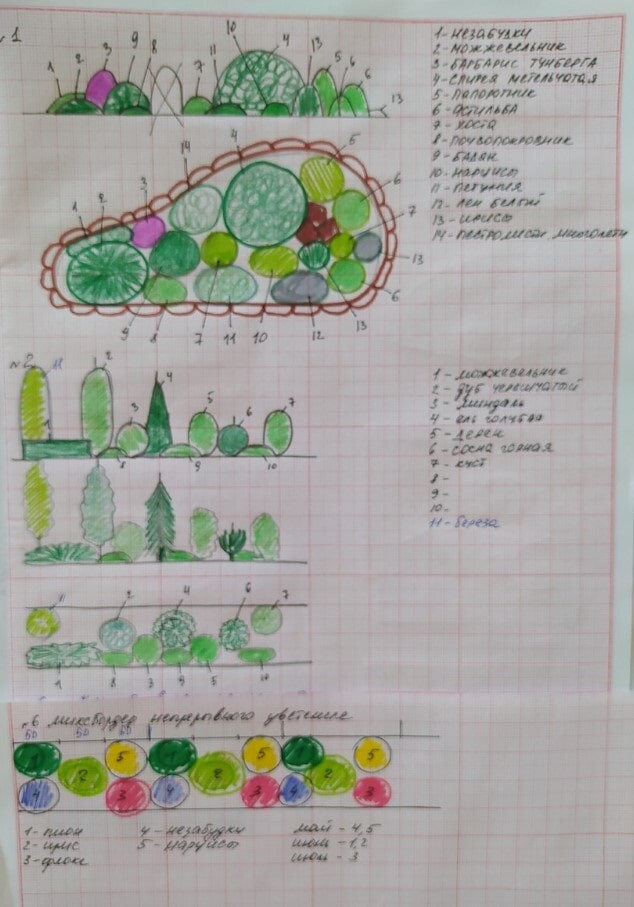 №1
1 2 3 9 8 7 11 10 4 13 5 6 6
13
1- НЕЗАБУДКИ
2- МОЖЖЕВЕЛЬНИК
3- БАРБАРИС ТУНБЕРГА
4- СПИРЕЯ МЕТЕЛЬЧАТАЯ
5- ПАПОРОТНИК
6- АСТИЛЬБА
7- ХОСТА
8- ПОЧВОПОКРОВНИК
9- БАДАН
10- НАРЦИСЫ
11- ПЕТУНИЯ
12- ЛЕН БЕЛЫЙ
13- ИРИСЫ
14- ПЕСТРОЛИСТН МНОГОЛЕТН
14 4 5
1 2 3 6
7
13
9 8 7 11 10 12 13 6
№2 11 2
4
1 3 5 6 7
8 9 10
1- МОЖЖЕВЕЛЬНИК
2- ДУБ ЧЕРЕШЧАТЫЙ
3- МИНДАЛЬ
4- ЕЛЬ ГОЛУБАЯ
5- ДЕРЕН
6- СОСНА ГОРНАЯ
7- КУСТ
8-
9-
10-
11- БЕРЕЗА
11 2 4 6 7
1 8 3 9 5 10
6 миксбордер непрерывного цветение
50 50 50
1 5 1 5 1 5
2 2 2
4 3 4 3 4 3
1- пион
2- ирис
3- флокс
4- незабудки
5- нарцисы
май - 4,5
июнь - 1,2
июль - 3